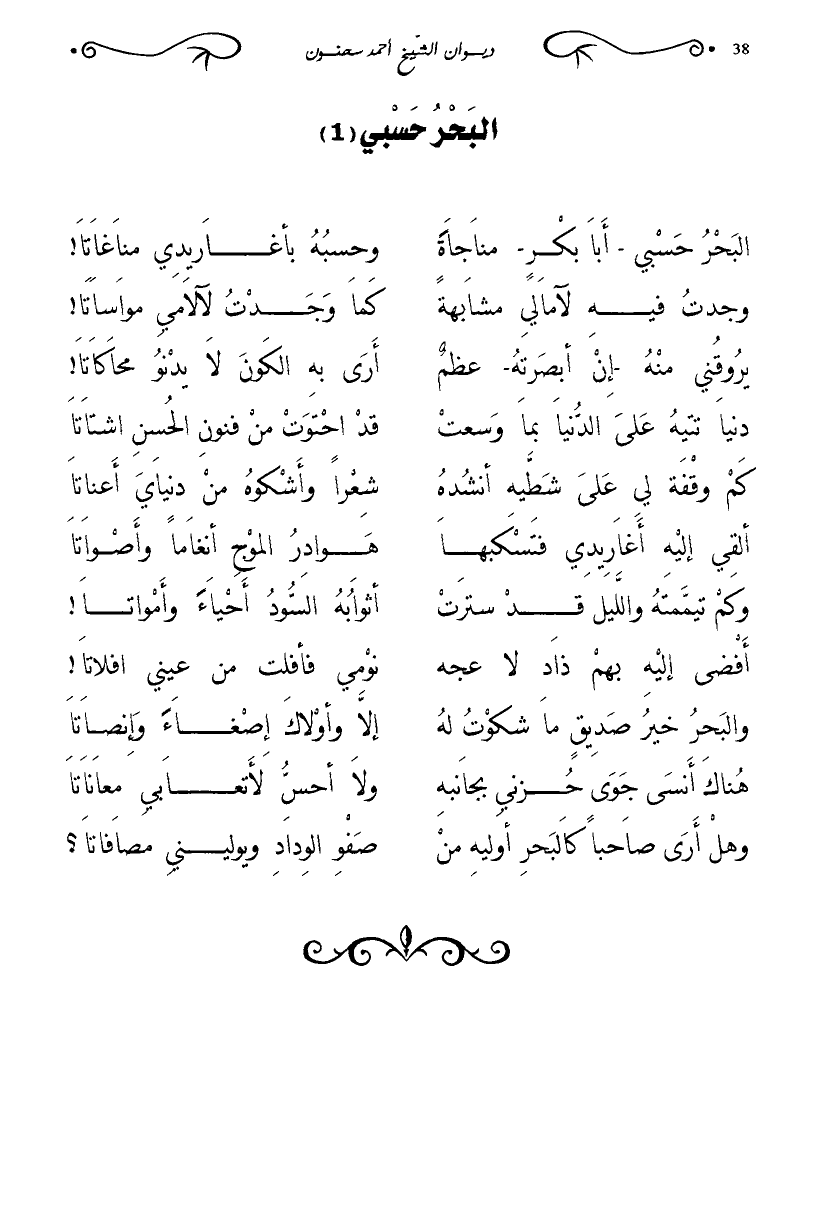 38 ديـوان الشّيخ أحمد سحنـون
البَحْرُ حَسْبي (1)
البَحْرُ حَسْبي - أَبَا بكْـرٍ- مناجاَةً وحسبُهُ بأغَـــاريدي مناغاَتاَ!
وجدتُ فيـــهِ لآمالي مشابهةً كَماَ وَجَـــدْتُ لآلاَمي مواساَتاَ!
يرُوقُني منْهُ -إنْ أبصَرتهُ- عظمٌ أَرَى به الكَونَ لاَ يدْنوُ محاَكاَتاَ!
دنياَ تتيهُ عَلىَ الدُّنياَ بماَ وَسَعتْ قدْ احْتوَتْ منْ فنون الحُسن اشتاَتاَ
كَمْ وقْفة لي عَلىَ شَطِّيه أنشُدهُ شعْراً وأَشْكوُهُ منْ دنياَيَ أَعناتاَ
ألقِي إليْه أَغاَريدي فتَسْكبهـاَ هَـــوادرُ الموْج أنغاَماً وأَصْـواَتاَ
وكَمْ تيمَّمتهُ واللَّيل قَـــدْ سترَتْ أثوَابُهُ السُّودُ أَحْياءً وأَمْواتــاَ!
أَفْضى إليْه بهمْ ذاَد لا عجه نوْمِي فأفلت من عيني افلاتاَ!
والبَحرُ خيرُ صَديقٍ ماَ شكوْتُ لهُ إلاَّ وأَوْلاَكَ إصْغَـــاءً وَإنصـاَتاَ
هُناكَ أَنسَى جَوَى حُـــزني بجانبه ولاَ أحسُّ لأَتعَـــابي معاَناَتاَ
وهلْ أَرَى صاَحباً كاَلبَحرِ أوليهِ منْ صَفْوِ الودادِ ويولِيـــني مصافاَتاَ ؟